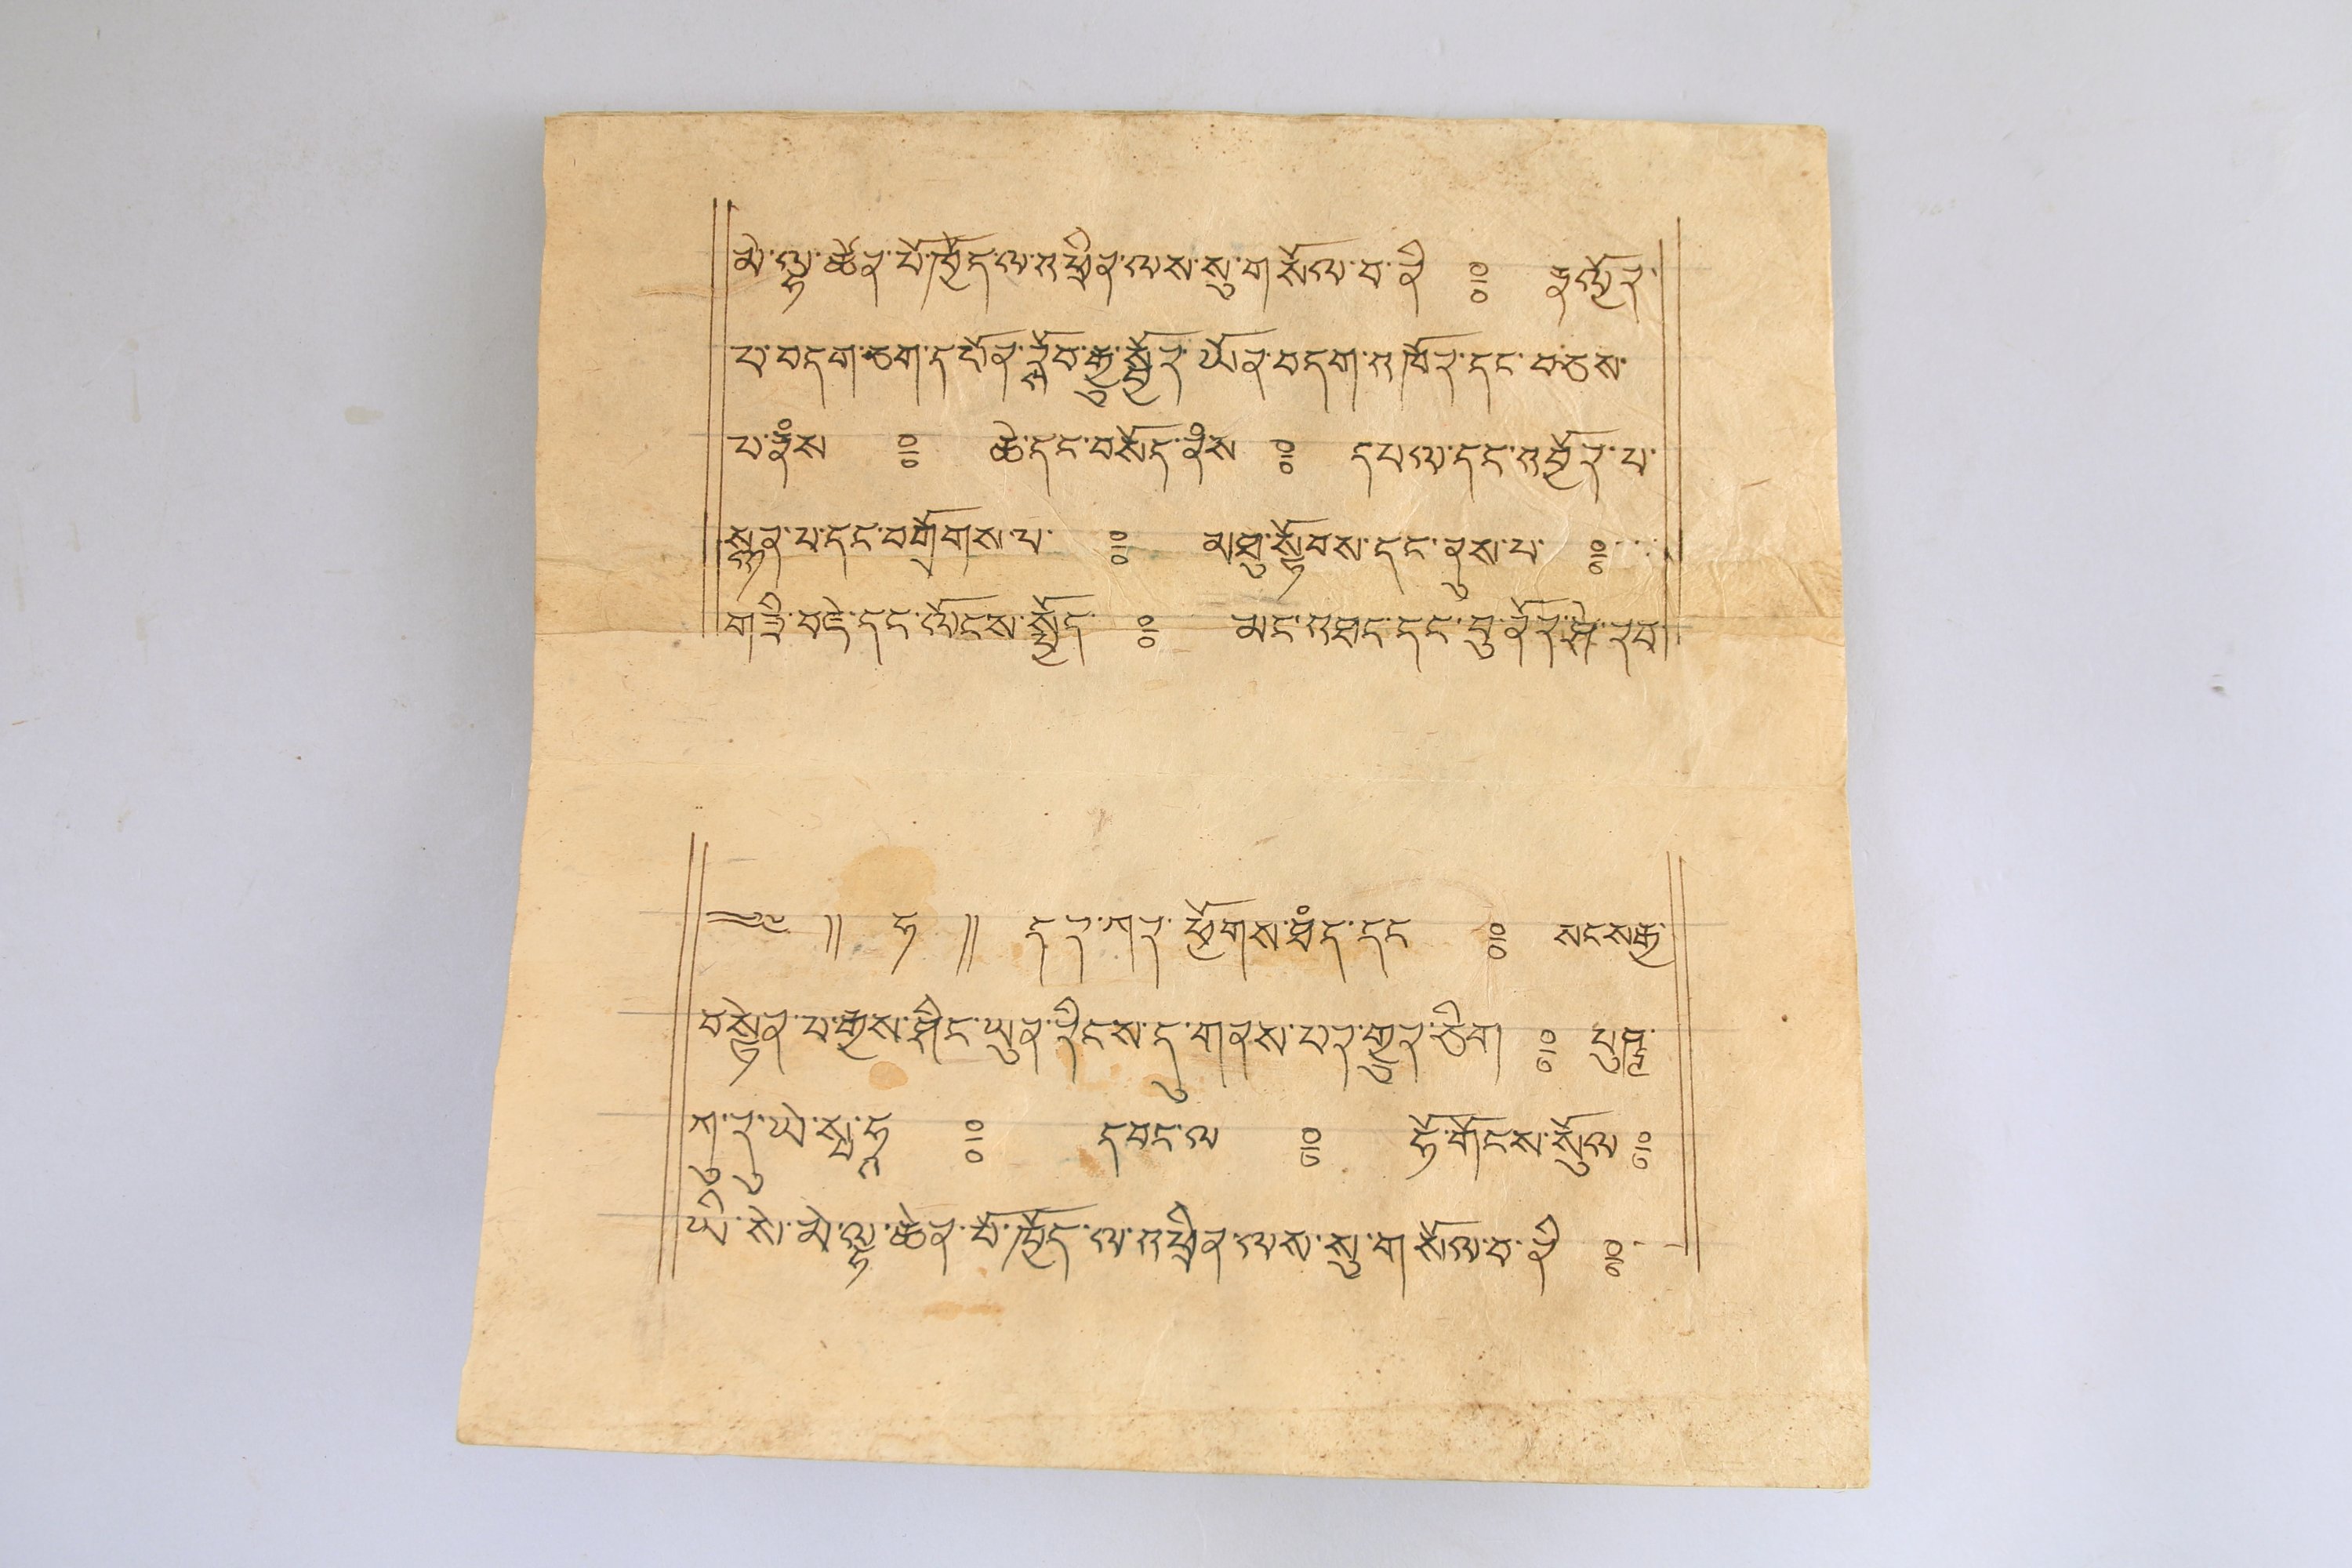 མེ་ལྷ་ཆེན་པོ་ཁྱོད་ལ་འཕྲིན་ལས་སུ་གསོལ་བ་ནི༔ རྣལ་འྱོར་
པ་བདག་ཅག་དཔོན་སློབ་རྒྱུ་སྦྱོར་ཡོན་བདག་འཁོར་དང་བཅས་
པ་རྣཾས༔ ཚེ་དང་བསོད་ནཾས༔ དཔལ་དང་འབྱོར་པ་
སྙན་པ་དང་བགྲོགས་པ༔ མཐུ་སྟོབས་དང་ནུས་པ༔
གཟི་བརྗི་དང་ལོངས་སྤྱོད༔ མང་འཐང་དང་བུ་ནོར་ཤེ་རབ
༄༅།། ཏ །། དཀར་ཕྱོགས་ཐཾད་དང༔ སངས་རྒྱ་
བསྟན་པ་རྒྱས་ཤིང་ཡུན་རིངས་དུ་གནས་པར་གྱུར་ཅིག༔ པུཎྜ་
ཀུ་རུ་ཡེ་སྭཱ་ཧཱ༔ དབང་ལ༔ ཧོ་གོངས་སོུལ༔
ཡི་སེ་མེ་ལྷ་ཆེན་པོ་ཁྱོད་ལ་འཕྲིན་ལས་སུ་གསོལ་བ་ནི༔